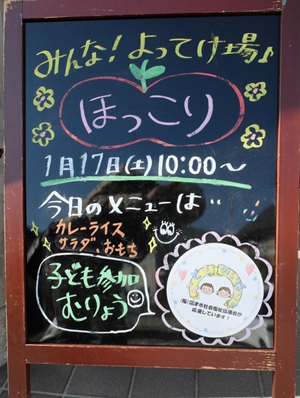 みんな！よってけ場♪
ほっこり
1月17日(土)10:00～
今日のメニューは‥
カレーライス
サラダ、おもち
子ども参加
むりょう
(福)沼津市社会福祉協議会が
応援しています！